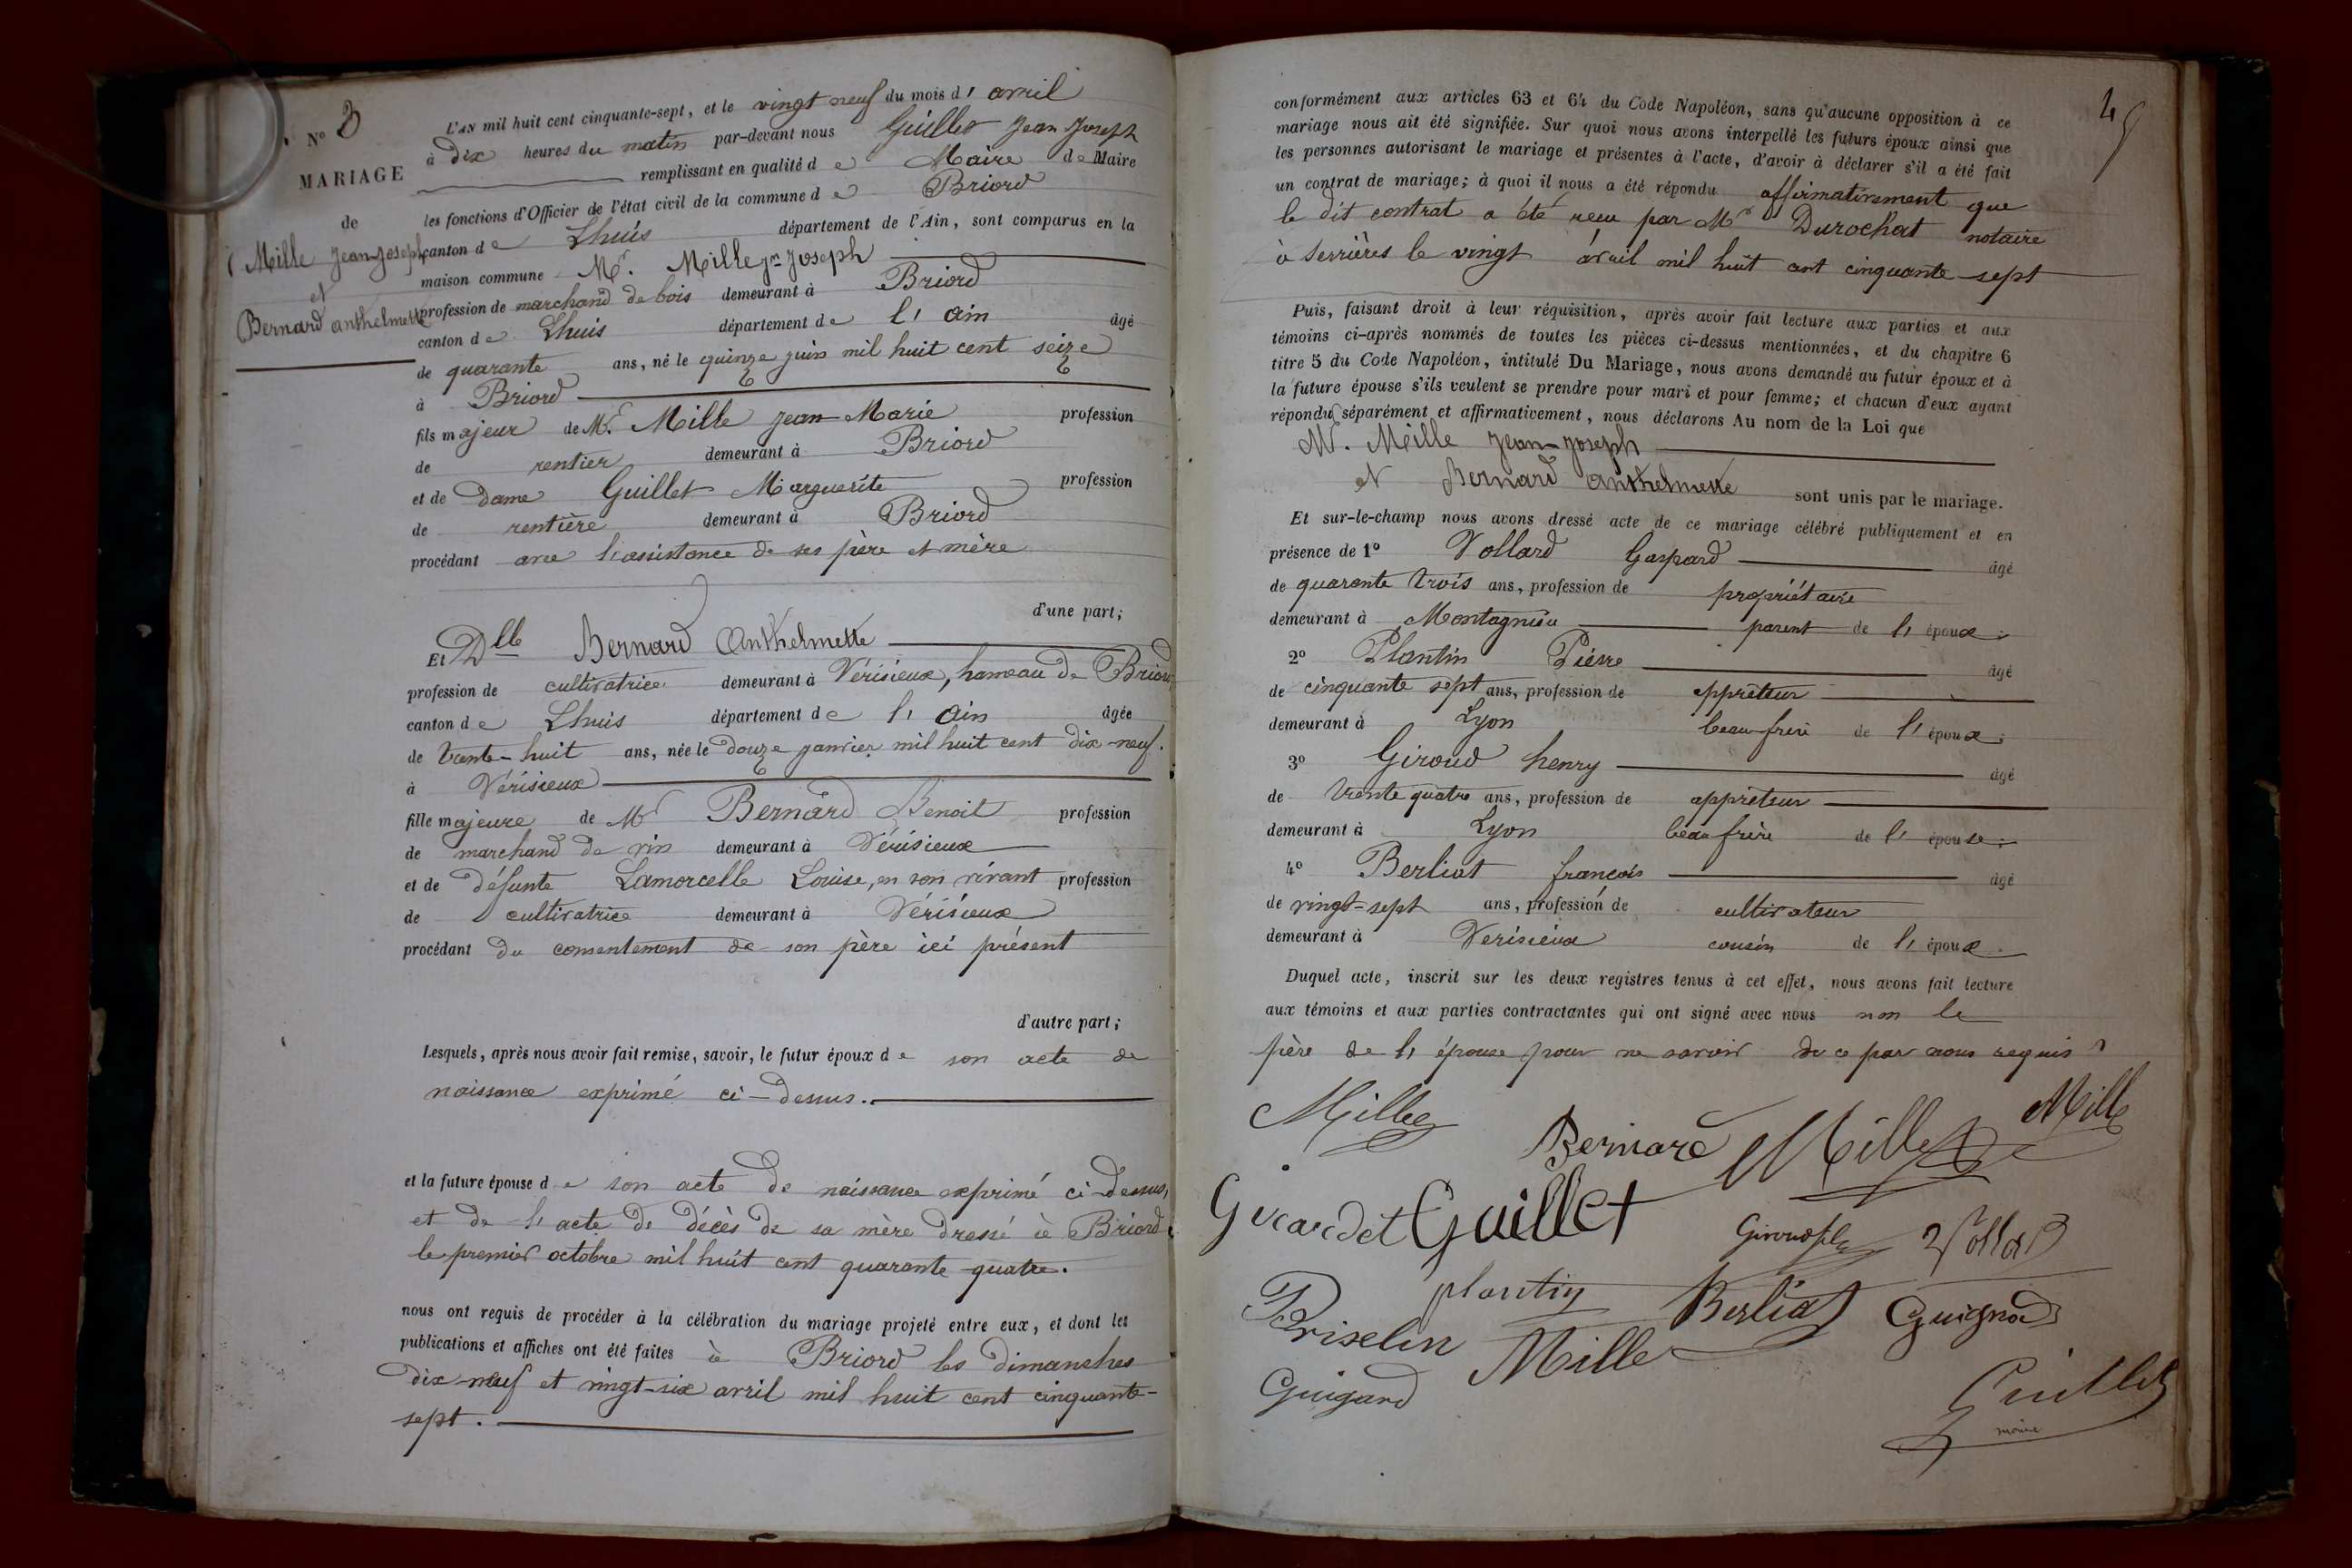 N° 3
MARIAGE
de
Mille Jean-Joseph
et
Bernard Anthelmette
L'AN mil huit cent cinquante-sept, et le vingt neuf du mois d' avril
à dix heures du matin par-devant nous Guillet Jean Joseph
remplissant en qualité de Maire de Maire
les fonctions d'Officier de l'état civil de la commune de Briord
canton de Lhuis département de l'Ain, sont comparus en la
maison commune Mr. Mille Jn Joseph
profession de marchand de bois demeurant à Briord
canton de Lhuis département de l' ain âgé
de quarante ans, né le quinze juin mil huit cent seize
à Briord
fils majeur de Mr. Mille Jean-Marie profession
de rentier demeurant à Briord
et de Dame Guillet Marguerite profession
de rentière demeurant à Briord
procédant avec l'assistance de ses père et mère
d'une part;
Et Dlle Bernard Anthelmette
profession de cultivatrice demeurant à Vérisieux, hameau de Briord
canton de Lhuis département de l' Ain âgée
de trente-huit ans, née le douze janvier mil huit cent dix-neuf.
à Vérisieux
fille majeure de Mr Bernard Benoit profession
de marchand de vin demeurant à Vérisieux
et de défunte Lamorcelle Louise, en son vivant profession
de cultivatrice demeurant à Vérisieux
procédant du consentement de son père ici présent
d'autre part;
Lesquels, après nous avoir fait remise, savoir, le futur époux de son acte de
naissance exprimé ci-dessus.
et la future épouse de son acte de naissance exprimé ci-dessus,
et de l'acte de décès de sa mère dressé à Briord
le premier octobre mil huit cent quarante-quatre.
nous ont requis de procéder à la célébration du mariage projeté entre eux, et dont les
publications et affiches ont été faites à Briord les dimanches
dix-neuf et vingt-six avril mil huit cent cinquante-
sept.
conformément aux articles 63 et 64 du Code Napoléon, sans qu'aucune opposition à ce
mariage nous ait été signifiée. Sur quoi nous avons interpellé les futurs époux ainsi que
les personnes autorisant le mariage et présentes à l'acte, d'avoir à déclarer s'il a été fait
un contrat de mariage; à quoi il nous a été répondu affirmativement que
le dit contrat a été reçu par Me Durochat notaire
à Serrières le vingt avril mil huit cent cinquante-sept
Puis, faisant droit à leur réquisition, après avoir fait lecture aux parties et aux
témoins ci-après nommés de toutes les pièces ci-dessus mentionnées, et du chapitre 6
titre 5 du Code Napoléon, intitulé Du Mariage, nous avons demandé au futur époux et à
la future épouse s'ils veulent se prendre pour mari et pour femme; et chacun d'eux ayant
répondu séparément et affirmativement, nous déclarons Au nom de la Loi que
Mr. Mille Jean-Joseph
et Bernard Anthelmette sont unis par le mariage.
Et sur-le-champ nous avons dressé acte de ce mariage célébré publiquement et en
présence de 1° Vollard Gaspard âgé
de quarante trois ans, profession de propriétaire
demeurant à Montagnieu parent de l' époux;
2° Plantin Pierre âgé
de cinquante sept ans, profession de apprêteur
demeurant à Lyon beau-frère de l' époux;
3° Giroud henry âgé
de trente quatre ans, profession de apprêteur
demeurant à Lyon beau frère de l' épouse;
4° Berliat françois âgé
de vingt-sept ans, profession de cultivateur
demeurant à Verisieux cousin de l' époux.
Duquel acte, inscrit sur les deux registres tenus à cet effet, nous avons fait lecture
aux témoins et aux parties contractantes qui ont signé avec nous non le
père de l' épouse pour ne savoir de ce par nous requis
Mille Bernard Mille Mille
Girardet Guillet Vollard
plantin Berliat Guignod
Priselin Mille
Guigard Guillet
maire